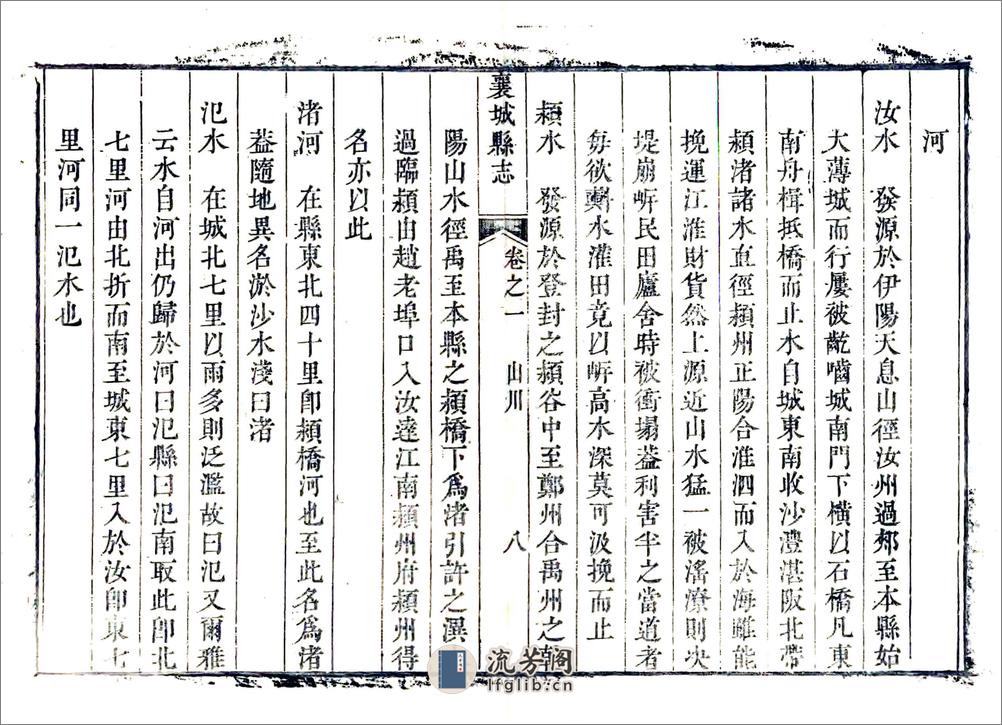 河
汝水　發源於伊陽天息山徑汝州過郟至本縣始
大薄城而行屢被齕嚙城南門下橫以石橋凡東
南舟楫抵橋而止水自城東南收沙灃湛阪北帶
潁渚諸水直徑潁州正陽合淮泗而入於海雖能
挽運江淮財貨然上源近山水猛一被滛潦則决
堤崩㟁民田廬舍時被衝塌葢利害半之當道者
每欲㪺水灌田竟以㟁高水深莫可汲挽而止
潁水　發源於登封之潁谷中至鄭州合禹州之
襄城縣志
卷之一　山川　八
陽山水徑禹至本縣之潁橋下爲渚引許之潩
過臨潁由趙老埠口入汝達江南潁州府潁州得
名亦以此
渚河　在縣東北四十里卽潁橋河也至此名爲渚
葢隨地異名淤沙水淺曰渚
氾水　在城北七里以雨多則泛濫故曰氾又爾雅
云水自河出仍歸於河曰氾縣曰氾南取此卽北
七里河由北折而南至城東七里入於汝卽東七
里河同一氾水也
流芳閣
lfglib.cn